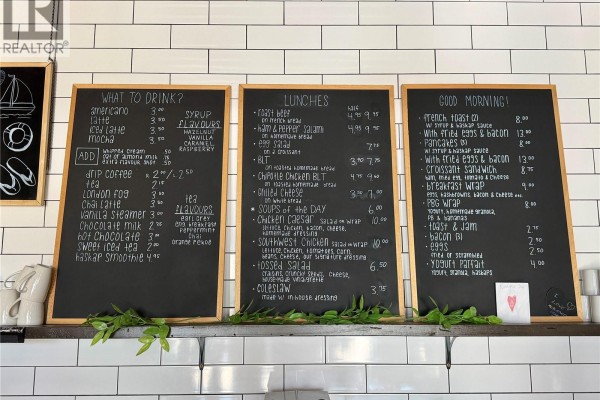 REALTOR
WHAT TO DRINK?
americano 3.00
latte 3.00
iced latte 3.50
mocha 3.50
ADD
whipped cream .50
oat or almond milk .75
extra flavour shot .50
drip coffee 2.00 / 2.50
tea 2.15
london fog 3.00
chai latte 3.50
vanilla steamer 3.00
chocolate milk 2.75
hot chocolate 3.00
sweet iced tea 2.00
haskap smoothie 4.95
SYRUP
FLAVOURS
HAZELNUT
VANILLA
CARAMEL
RASPBERRY
tea
FLAVOURS
earl grey
eng breakfast
peppermint
chai
orange pekoe
LUNCHES
HALF
• roast beef 4.95 9.95
on french bread
• ham & pepper salami 4.95 9.95
on homemade bread
• egg salad 7.75
on a croissant
• BLT 3.90 7.75
on toasted homemade bread
• CHIPOTLE CHICKEN BLT 4.75 9.50
on toasted homemade bread
• grilled cheese
on white bread
• SOUPS of the DAY 6.00
• CHICKEN CAESAR SALAD OR WRAP 10.00
lettuce, chicken, bacon, cheese,
homemade dressing
• SOUTHWEST CHICKEN SALAD OR WRAP 10.00
lettuce, chicken, tomatoes, corn,
beans, cheese, our signature dressing
• tossed salad 6.50
craisins, crunchy seeds, cheese,
house-made vinaigrette
• COLESLAW 3.75
made w/ in house dressing
GOOD MORNING!
• french toast (2) 8.00
w/ syrup & haskap sauce
• with fried eggs & bacon 13.00
• pancakes (2) 8.00
w/ syrup & haskap sauce
• with fried eggs & bacon 13.00
• croissant sandwich 8.75
ham, fried egg, tomato & cheese
• breakfast wrap 9.00
eggs, hashbrowns, bacon & cheese
• PBG WRAP 8.00
yogurt, homemade granola,
PB & bananas
• toast & jam 2.75
• bacon (3) 2.50
• eggs 2.50
fried or scrambled
• yogurt parfait 4.00
yogurt, granola, haskaps